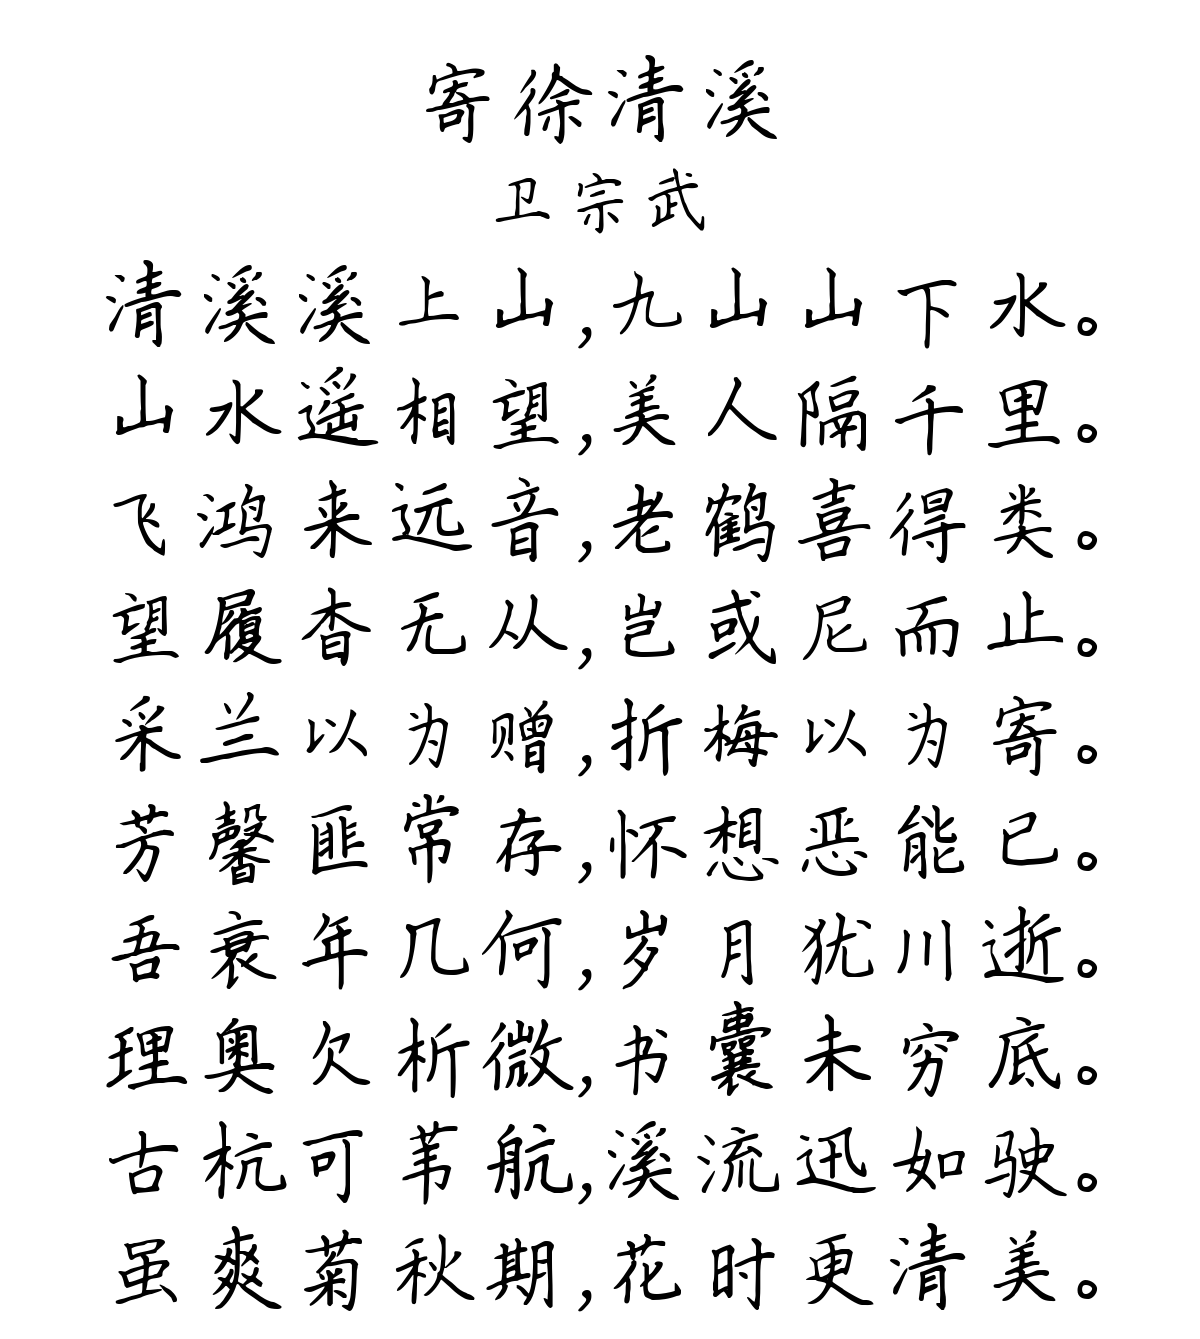 寄徐清溪
卫宗武
清溪溪上山,九山山下水。
山水遥相望,美人隔千里。
飞鸿来远音,老鹤喜得类。
望履杳无从,岂或尼而止。
采兰以为赠,折梅以为寄。
芳馨匪常存,怀想恶能已。
吾衰年几何,岁月犹川逝。
理奥欠析微,书囊未穷底。
古杭可苇航,溪流迅如驶。
虽爽菊秋期,花时更清美。